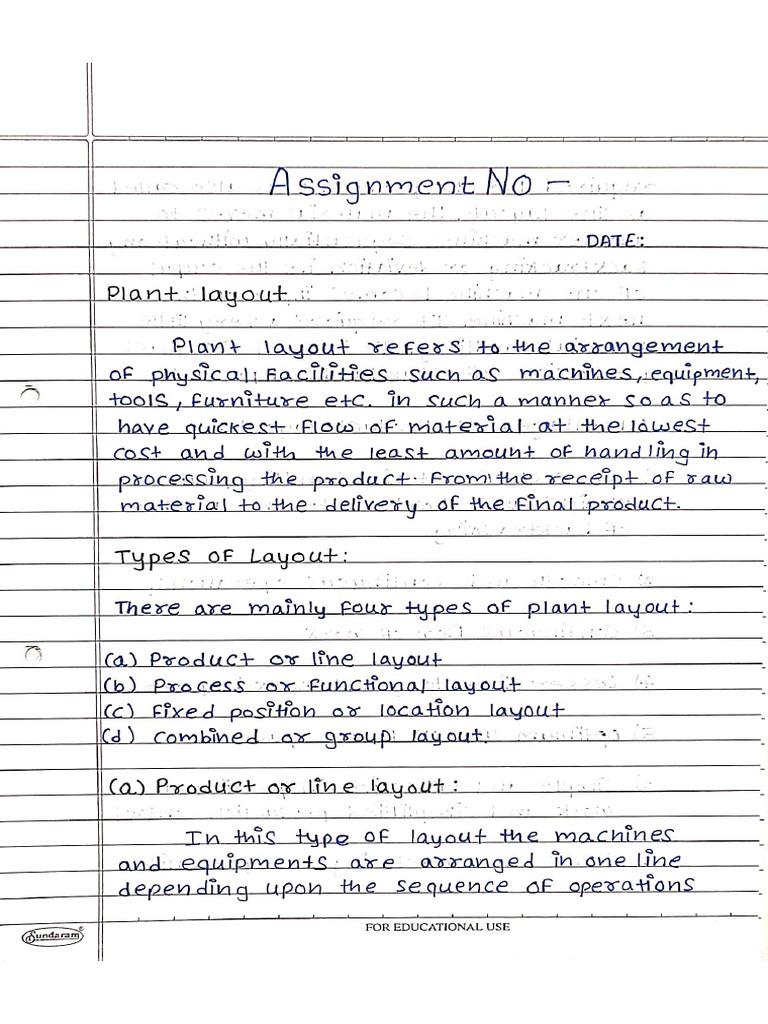 Assignment NO -
DATE:
Plant layout
Plant layout refers to the arrangement
of physical facilities such as machines, equipment,
tools, furniture etc. in such a manner so as to
have quickest flow of material at the lowest
cost and with the least amount of handling in
processing the product from the receipt of raw
material to the delivery of the final product.
Types of Layout:
There are mainly four types of plant layout:
(a) Product or line layout
(b) Process or functional layout
(c) Fixed position or location layout
(d) combined or group layout.
(a) Product or line layout:
In this type of layout the machines
and equipments are arranged in one line
depending upon the sequence of operations
Sundaram
FOR EDUCATIONAL USE